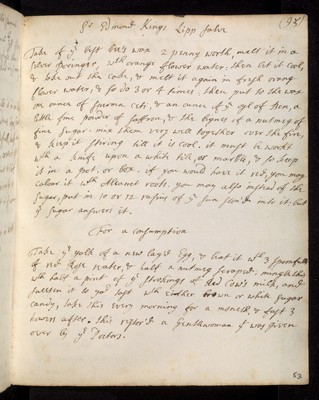 (93)
Sr Edmond Kings Lipp salve
Take of ye best bees wax 2 penny worth, melt it in a
silver Poringer, wth orange flower water, then let it cool,
& take out the cake, & melt it again in fresh orang
flower water, & so do 3 or 4 times, then put to the wax
an ounce of sparma Ceti, & an ounce of ye oyl of Ben, a
little fine powder of saffron, & the bignes of a nutmeg of
fine sugar. mix them very well together over the fire,
& keep it stiring till it is cool. it must be workt
wth a knife upon a white tile, or marble, & so keep
it in a pot, or box. if you would have it red, you may
colour it wth Alkanet roots. you may also instead of the
Sugar, put in 10 or 12 raisins of ye sun ston'd into it, but
ye sugar answers it.
For a consumption
Take ye yolk of a new layd Egg, & beat it wth 3 spoonfulls
of red Rose water, & half a nutmeg scraped, mingle this
wth half a pint of ye strokings of Red Cow's milk, and
sweeten it to yor tast wth either brown or white sugar
candy, take this every morning for a moneth, & fast 3
howrs after. this restor'd a Gentlewoman yt was given
over by ye Doctors.
53